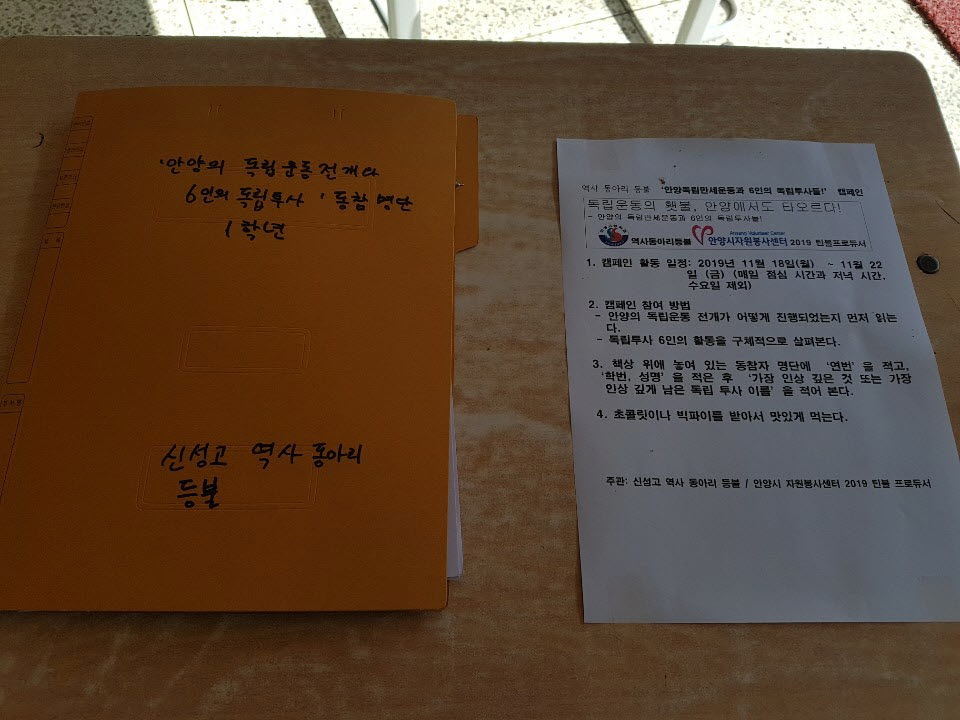 '안양의 독립운동전개다
6인의 독립투사' 동참 명단
1학년
신성고 역사 동아리
등불
역사 동아리 등불 '안양독립만세운동과 6인의 독립투사들!' 캠페인
독립운동의 횃불, 안양에서도 타오르다!
- 안양의 독립만세운동과 6인의 독립투사들!
역사동아리등불 Anyang Volunteer Center 안양시자원봉사센터 2019 틴볼프로듀서
1. 캠페인 활동 일정: 2019년 11월 18일(월) ~ 11월 22
일 (금) (매일 점심 시간과 저녁 시간,
수요일 제외)
2. 캠페인 참여 방법
- 안양의 독립운동 전개가 어떻게 진행되었는지 먼저 읽는
다.
- 독립투사 6인의 활동을 구체적으로 살펴본다.
3. 책상 위에 놓여 있는 동참자 명단에 '연번' 을 적고,
'학번, 성명' 을 적은 후 '가장 인상 깊은 것 또는 가장
인상 깊게 남은 독립 투사 이름' 을 적어 본다.
4. 초콜릿이나 빅파이를 받아서 맛있게 먹는다.
주관: 신성고 역사 동아리 등불 / 안양시 자원봉사센터 2019 틴볼 프로듀서